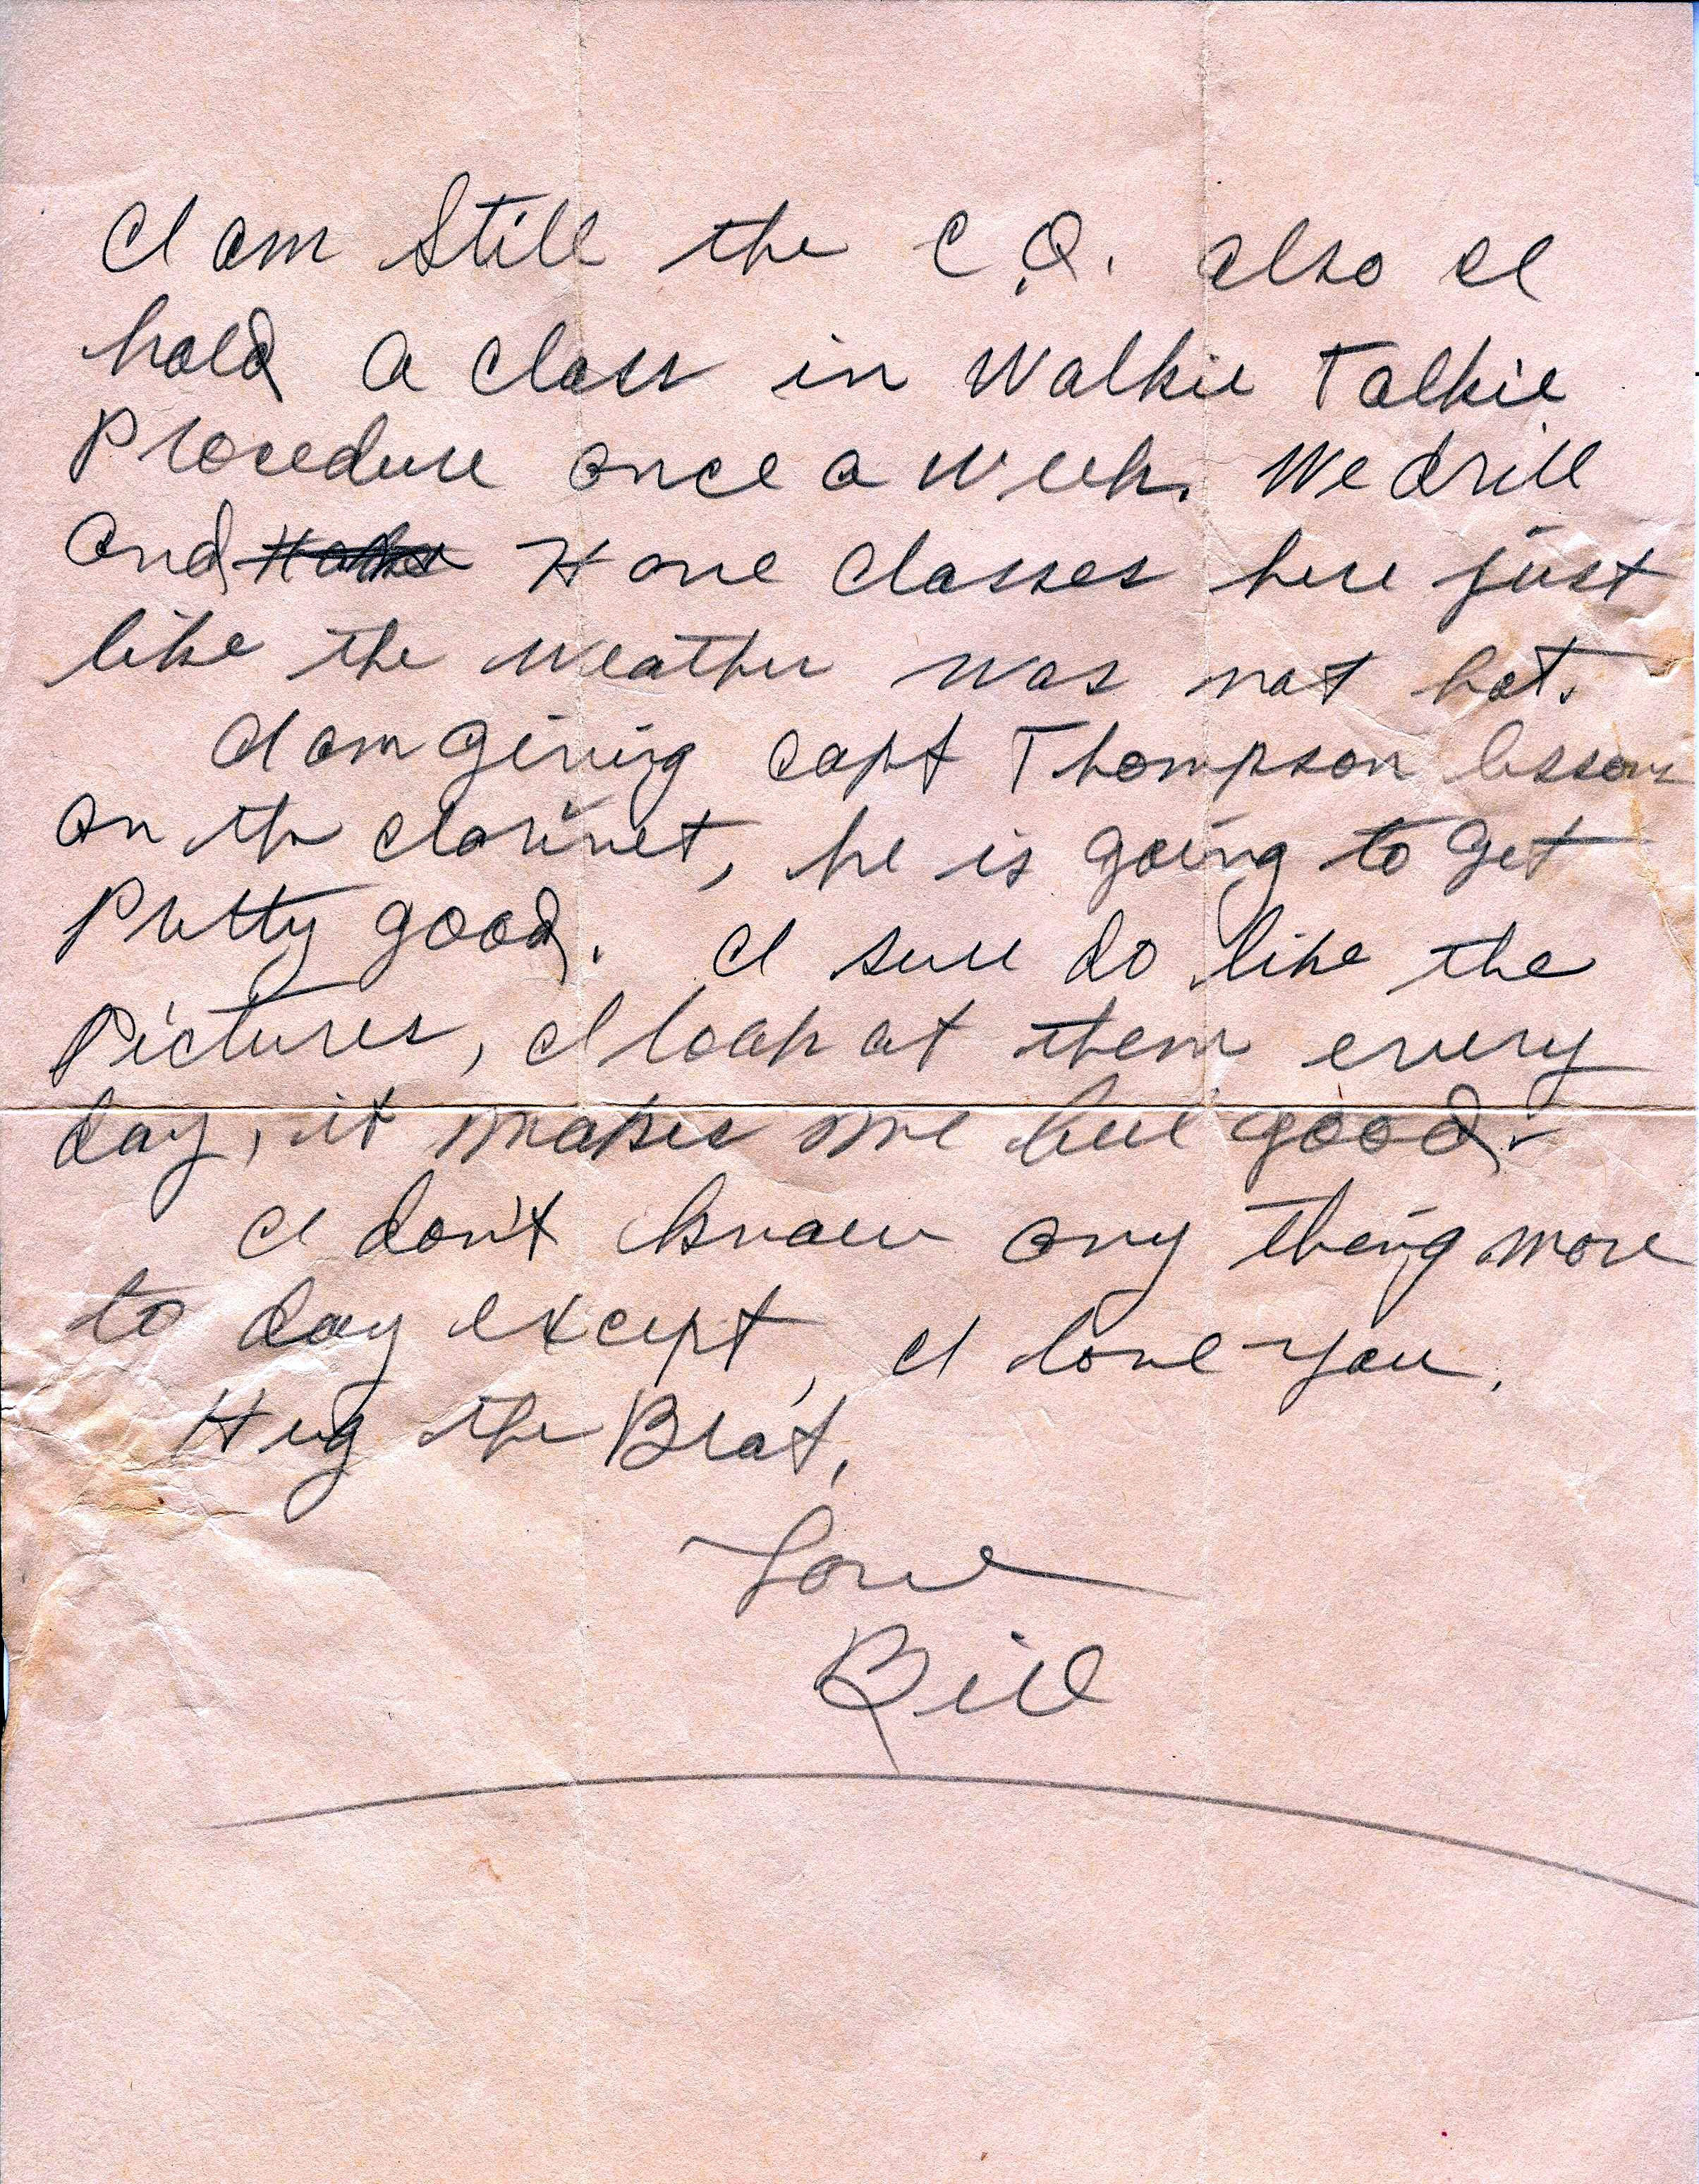 I am Still the C.Q. also I
hold a class in Walkie Talkie
Procedure once a week. We drill
and Have classes here just
like the weather was not hot.
I am giving Capt Thompson lessons
on the clarinet, he is going to get
Pretty good. I sure do like the
Pictures, I look at them every
day, it makes me feel good.
I don't know any thing more
to day except, I love you.
Hug the Brat,
Love
Bill